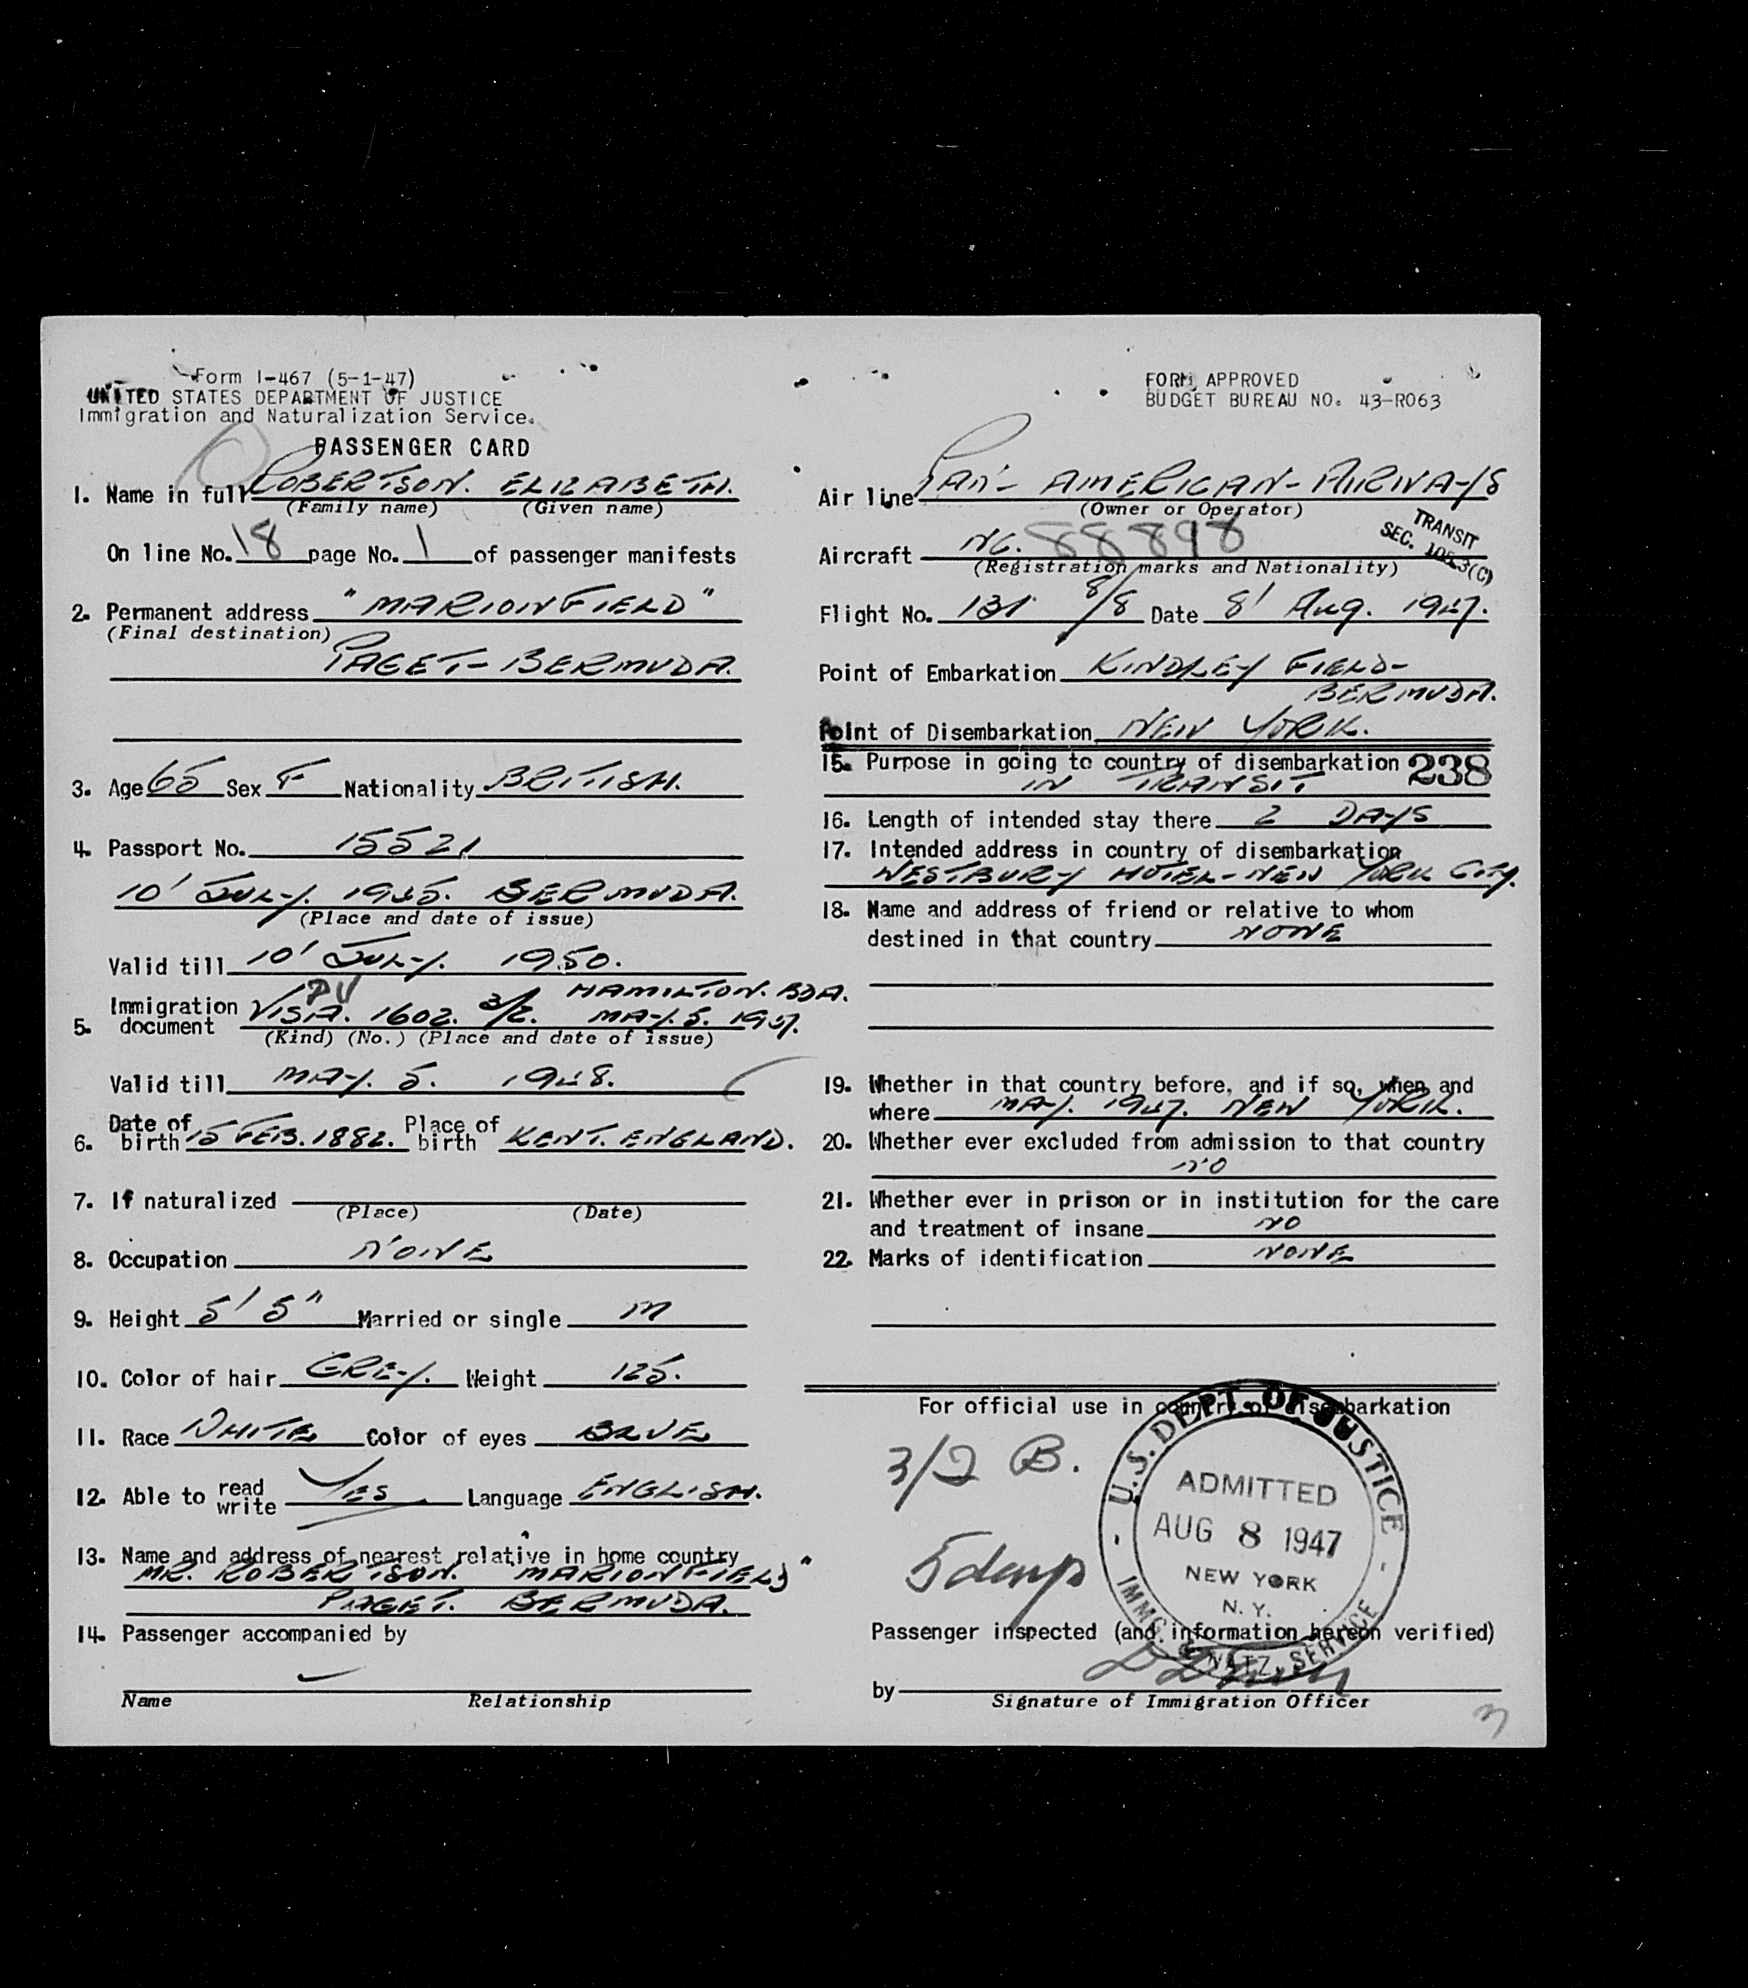 Form I-467 (5-1-47)
UNITED STATES DEPARTMENT OF JUSTICE
Immigration and Naturalization Service.
PASSENGER CARD
1. Name in full ROBERTSON. ELIZABETH.
(Family name) (Given name)
On line No. 18 page No. 1 of passenger manifests
2. Permanent address "MARIONFIELD"
(Final destination)
PAGET - BERMUDA.
3. Age 65 Sex F Nationality BRITISH.
4. Passport No. 15521
10' JULY. 1945. BERMUDA.
(Place and date of issue)
Valid till 10' JULY. 1950.
PV HAMILTON. BDA.
5. Immigration document VISA. 1602. 3/2. MAY. 5. 1947.
(Kind) (No.) (Place and date of issue)
Valid till MAY. 5. 1948.
6. Date of birth 15 FEB. 1882. Place of birth KENT. ENGLAND.
7. If naturalized
(Place) (Date)
8. Occupation NONE
9. Height 5' 5" Married or single M
10. Color of hair GREY. Weight 125.
11. Race WHITE Color of eyes BLUE
12. Able to read write YES Language ENGLISH.
13. Name and address of nearest relative in home country
MR. ROBERTSON. "MARIONFIELD"
PAGET. BERMUDA.
14. Passenger accompanied by
Name Relationship
FORM APPROVED
BUDGET BUREAU NO. 43-R063
Air line PAN - AMERICAN - AIRWAYS
(Owner or Operator)
TRANSIT
SEC. 10 3(C)
Aircraft NC. 88898
(Registration marks and Nationality)
Flight No. 131 8/8 Date 8' Aug. 1947.
Point of Embarkation KINDLEY FIELD -
BERMUDA.
Point of Disembarkation NEW YORK.
15. Purpose in going to country of disembarkation 238
IN TRANSIT
16. Length of intended stay there 2 DAYS
17. Intended address in country of disembarkation
WESTBURY HOTEL - NEW YORK CITY.
18. Name and address of friend or relative to whom
destined in that country NONE
19. Whether in that country before, and if so, when and
where MAY. 1947. NEW YORK.
20. Whether ever excluded from admission to that country
NO
21. Whether ever in prison or in institution for the care
and treatment of insane NO
22. Marks of identification NONE
For official use in country of disembarkation
3/2 B.
5 days
U.S. DEPT. OF JUSTICE
ADMITTED
AUG 8 1947
NEW YORK
N. Y.
IMMG. & NATZ. SERVICE
Passenger inspected (and information hereon verified)
by
Signature of Immigration Officer
3